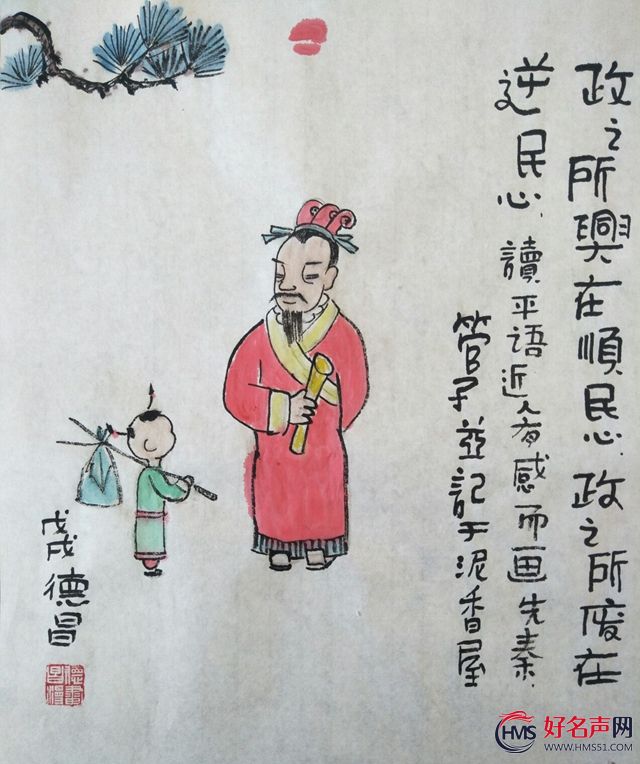 政之所興在順民心.政之所废在
逆民心.讀平语近人有感而画先秦.
管子並記于泥香屋
戊戌德昌
HMS
好名声网
WWW.HMS51.COM